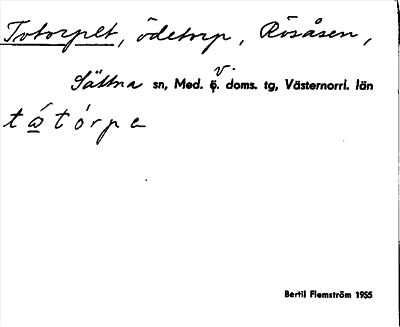 Totorpet, ödetorp, Rösåsen,
Sättna sn, Med. v. doms. tg, Västernorrl. län
tá̲tórpa
Bertil Flemström 1955